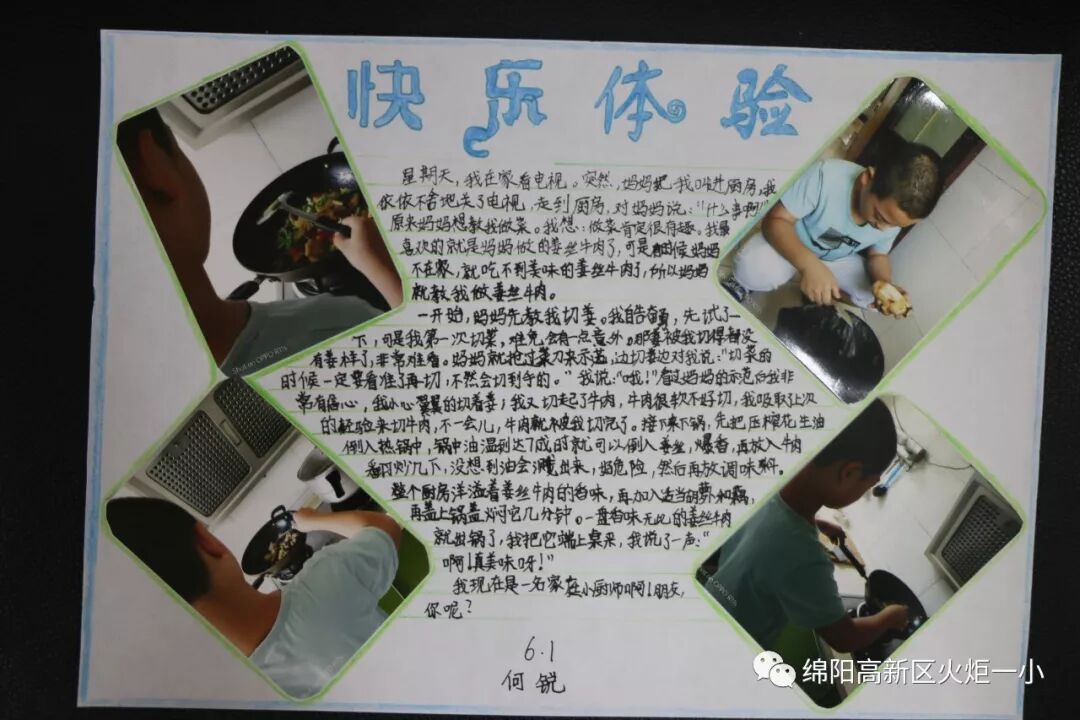 快乐体验
星期天,我在家看电视。突然,妈妈把我叫进厨房,我
依依不舍地关了电视,走到厨房,对妈妈说:“什么事啊?”
原来妈妈想教我做菜。我想:做菜肯定很有趣。我最
喜欢的就是妈妈做的姜丝牛肉了,可是有时候妈妈
不在家,就吃不到美味的姜丝牛肉了,所以妈妈
就教我做姜丝牛肉。
一开始,妈妈先教我切姜。我自告奋勇,先试了一
下,可是我第一次切菜,难免会有一点意外。那姜被我切得都没
有姜样了,非常难看。妈妈就抢过菜刀来示范,边切姜边对我说:“切菜的
时候一定要看准了再切,不然会切到手的。”我说:“哦!”看过妈妈的示范后我非
常有信心,我小心翼翼的切着姜;我又切起了牛肉,牛肉很软不好切,我吸取了上次
的经验来切牛肉,不一会儿,牛肉就被我切完了。接下来下锅,先把压榨花生油
倒入热锅中,锅中油温到达7成时就可以倒入姜丝,爆香,再放入牛肉
翻炒几下,没想到油会溅出来,好危险,然后再放调味料。
整个厨房洋溢着姜丝牛肉的香味,再加入适当胡萝卜和藕,
再盖上锅盖焖它几分钟。一盘香味无比的姜丝牛肉
就出锅了,我把它端上桌来,我说了一声:“
啊!真美味呀!”
我现在是一名家庭小厨师啊!朋友,
你呢?
6.1
何锐
Shot on OPPO R11s
绵阳高新区火炬一小